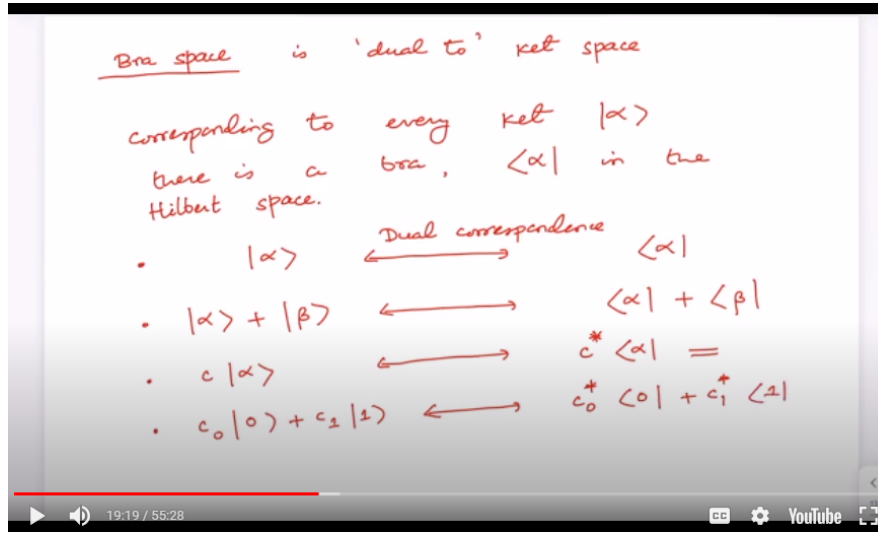 Bra space is 'dual to' ket space
corresponding to every ket |α>
there is a bra, <α| in the
Hilbert space.
Dual correspondence
• |α> ⟷ <α|
• |α> + |β> ⟷ <α| + <β|
• c |α> ⟷ c* <α| =
• c₀|0> + c₁|1> ⟷ c₀* <0| + c₁* <1|
19:19 / 55:28
CC
YouTube